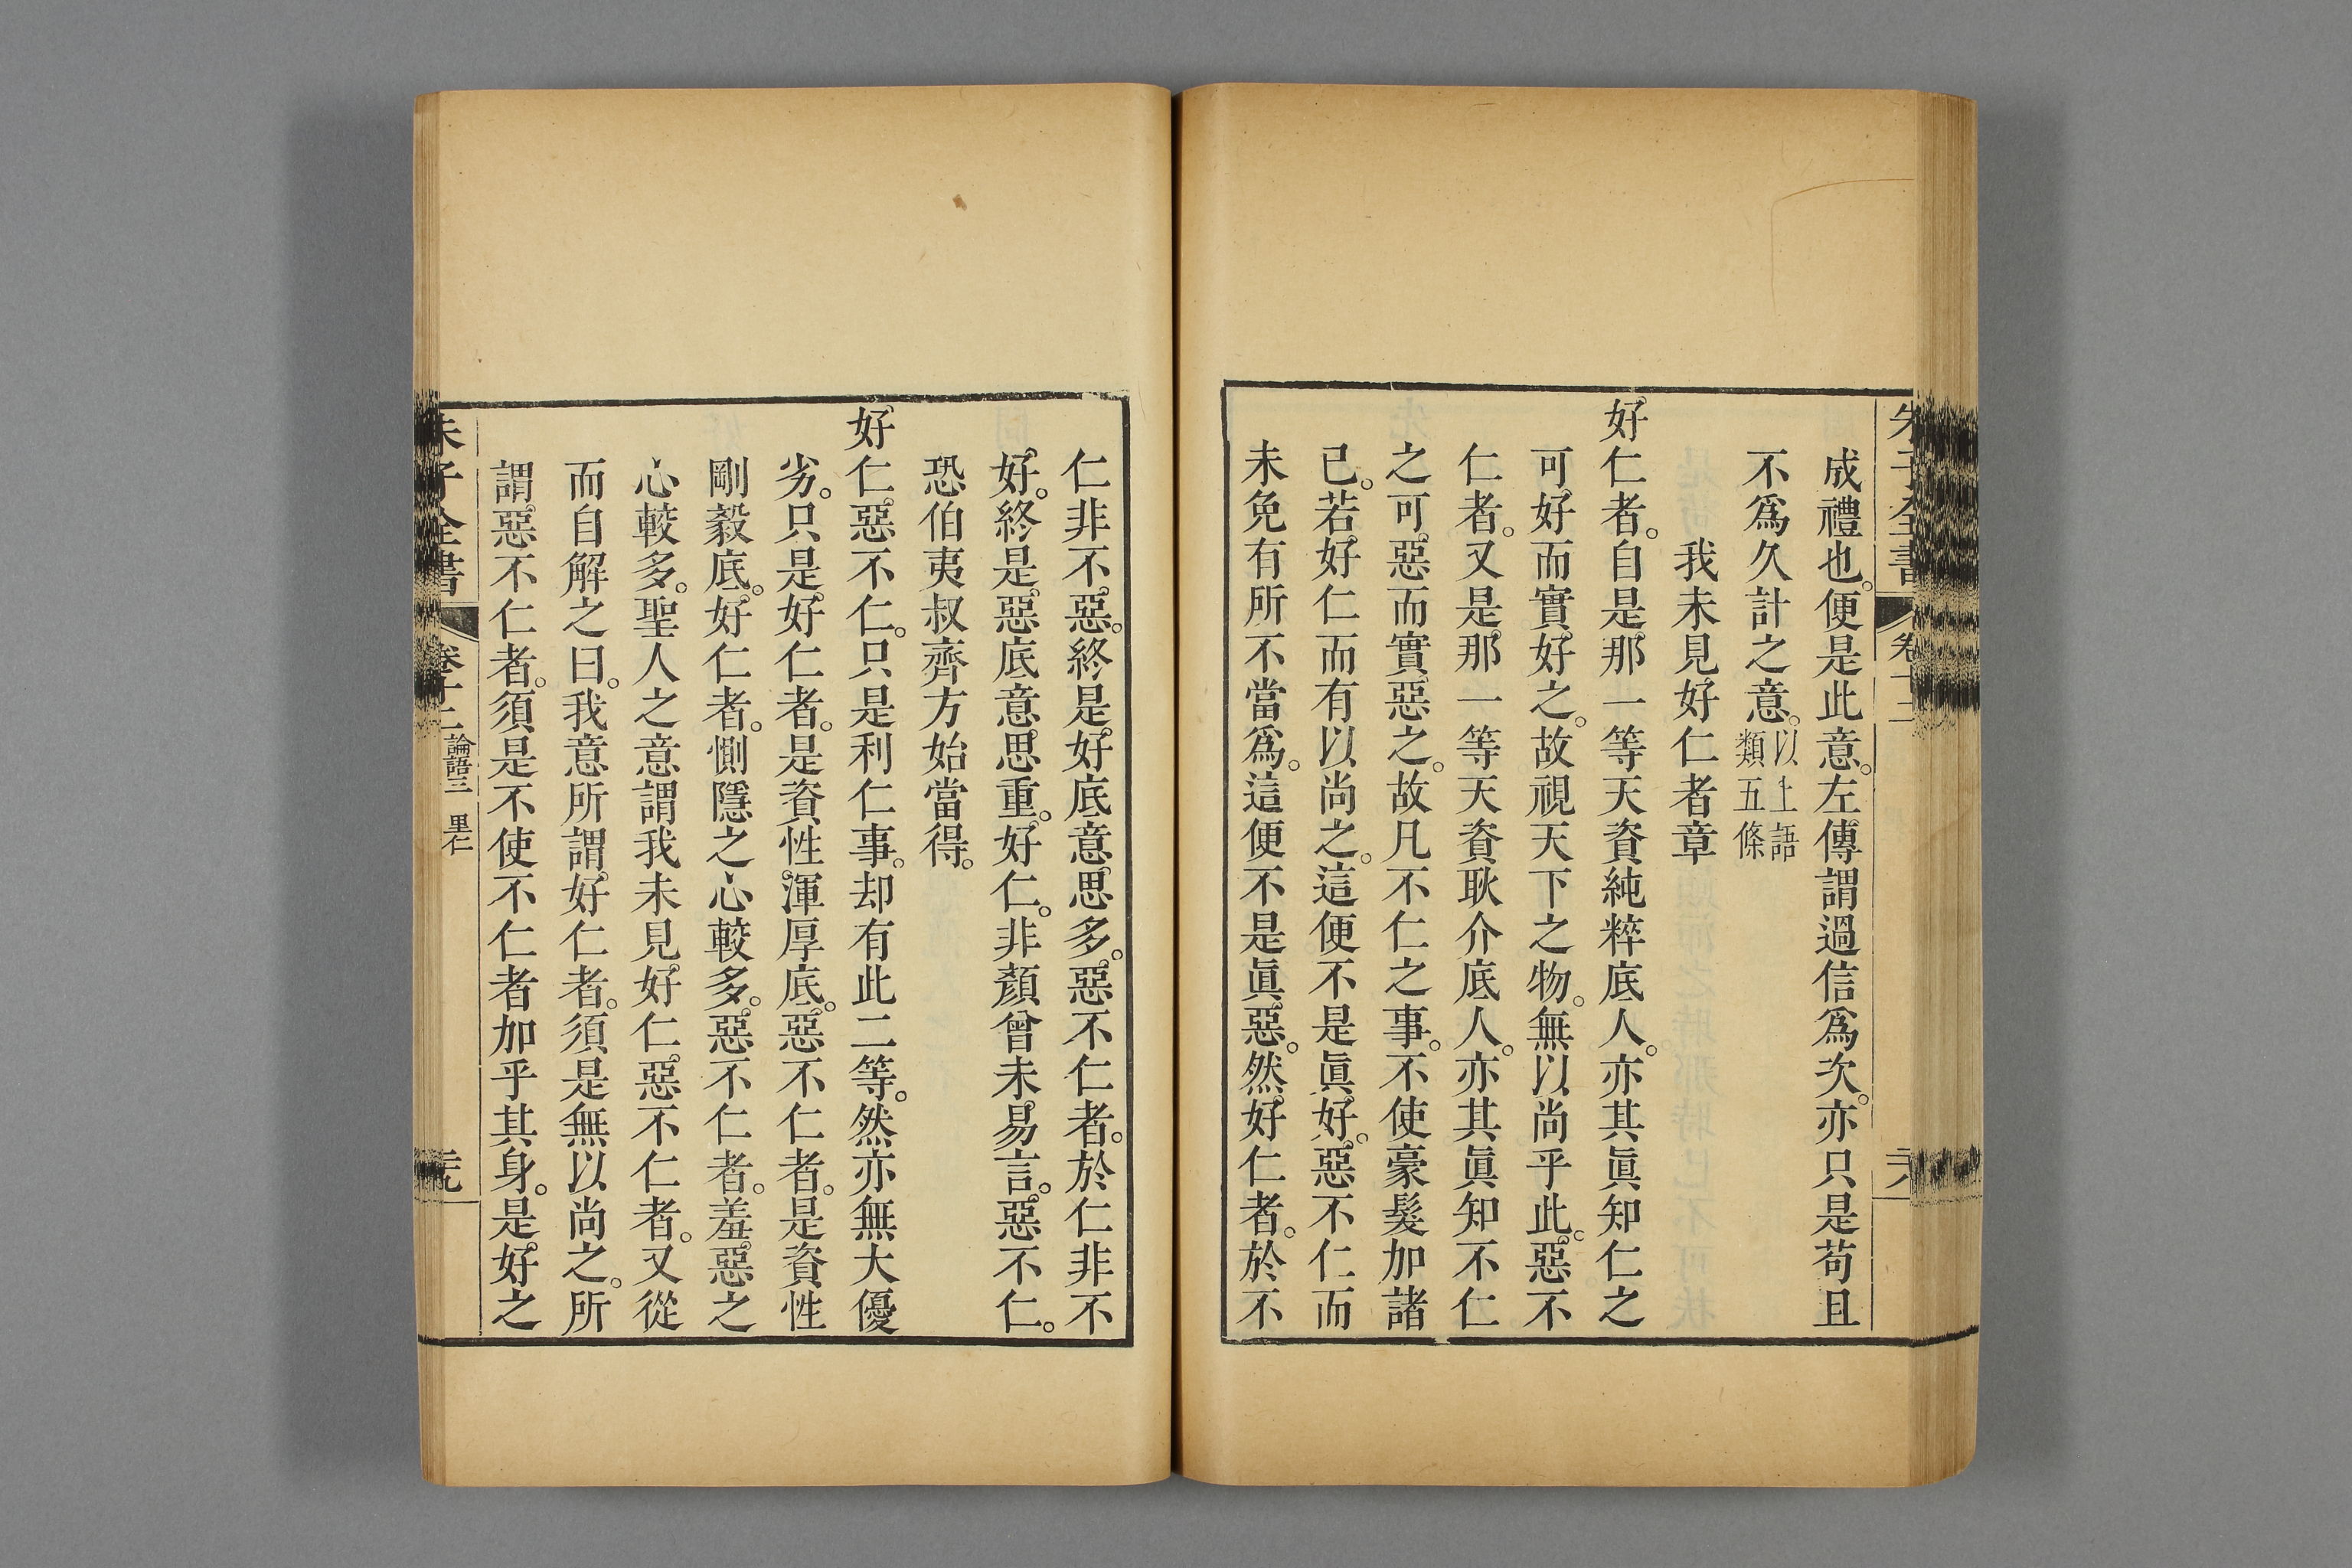 朱子全書 卷十二 二十八
成禮也。便是此意。左傳謂過信爲次。亦只是苟且
不爲久計之意。以上語類五條
我未見好仁者章
好仁者。自是那一等天資純粹底人。亦其眞知仁之
可好而實好之。故視天下之物。無以尚乎此。惡不
仁者。又是那一等天資耿介底人。亦其眞知不仁
之可惡而實惡之。故凡不仁之事。不使豪髮加諸
已。若好仁而有以尚之。這便不是眞好。惡不仁而
未免有所不當爲。這便不是眞惡。然好仁者。於不
仁非不惡。終是好底意思多。惡不仁者。於仁非不
好。終是惡底意思重。好仁。非顏曾未易言。惡不仁。
恐伯夷叔齊方始當得。
好仁惡不仁。只是利仁事。却有此二等。然亦無大優
劣。只是好仁者。是資性渾厚底。惡不仁者。是資性
剛毅底。好仁者。惻隱之心較多。惡不仁者。羞惡之
心較多。聖人之意謂我未見好仁惡不仁者。又從
而自解之曰。我意所謂好仁者。須是無以尚之。所
謂惡不仁者。須是不使不仁者加乎其身。是好之
朱子全書 卷十二 論語三 里仁